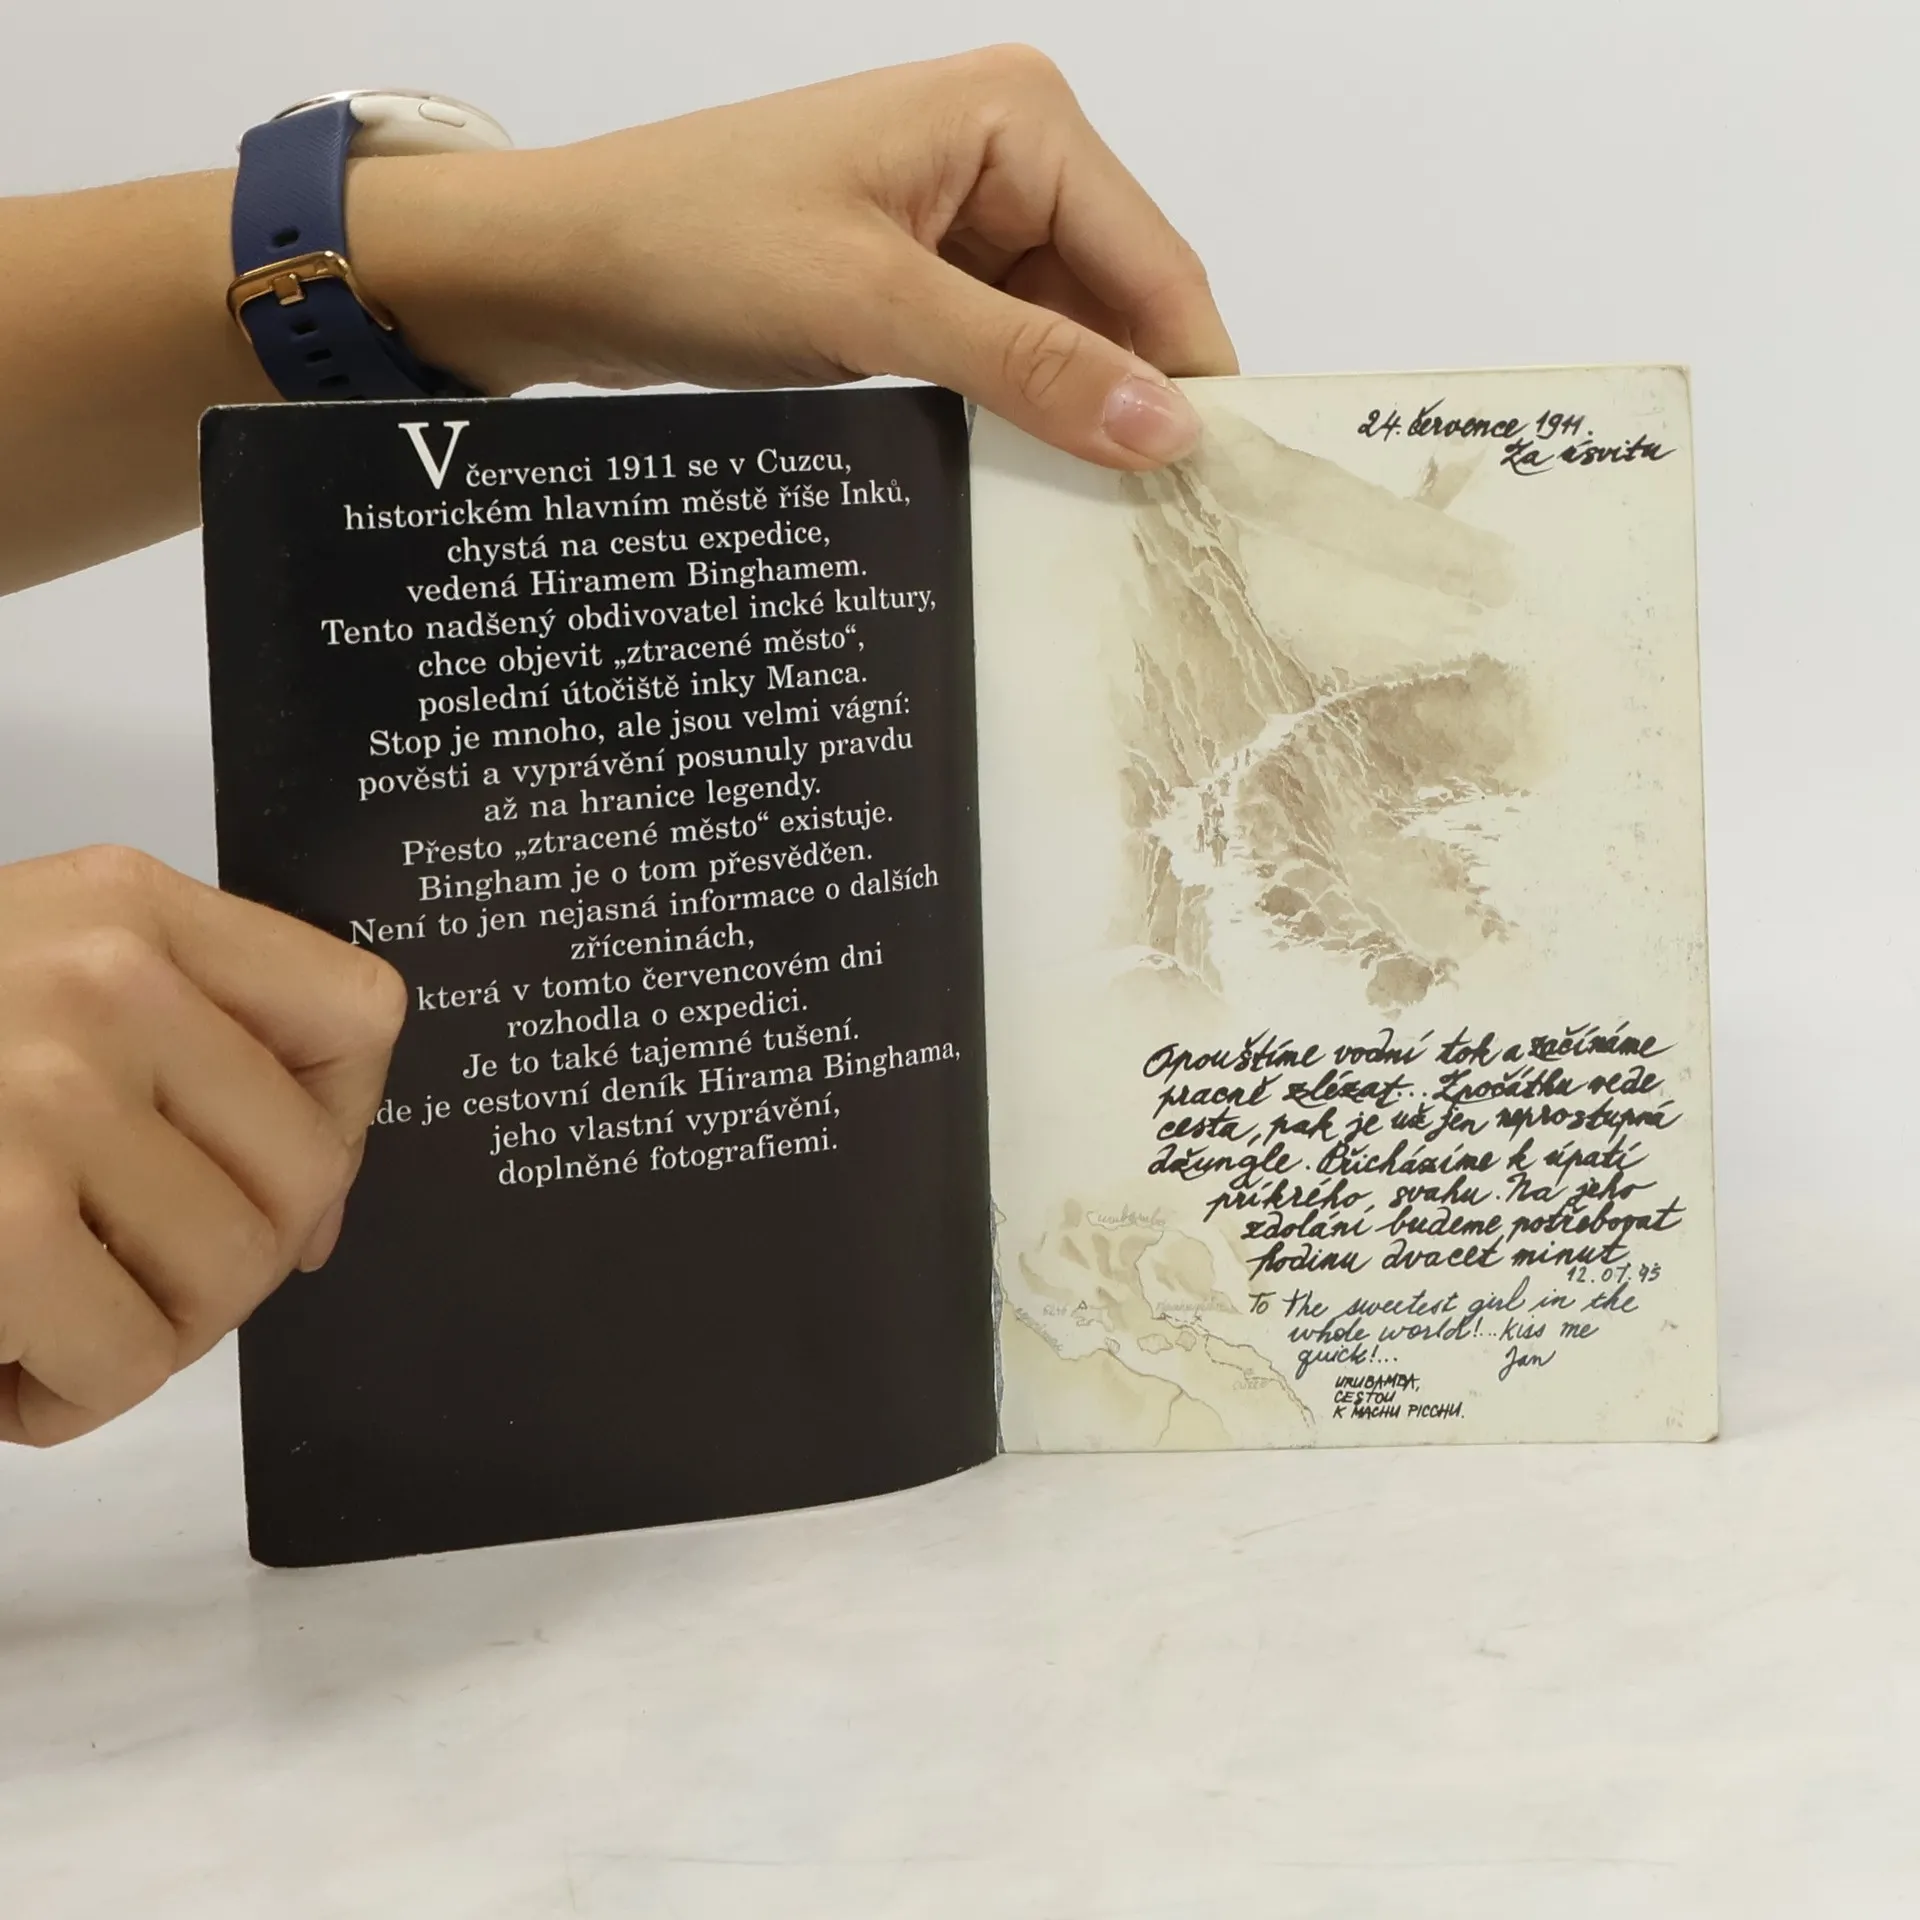 V červenci 1911 se v Cuzcu,
historickém hlavním městě říše Inků,
chystá na cestu expedice,
vedená Hiramem Binghamem.
Tento nadšený obdivovatel incké kultury,
chce objevit „ztracené město“,
poslední útočiště inky Manca.
Stop je mnoho, ale jsou velmi vágní:
pověsti a vyprávění posunuly pravdu
až na hranice legendy.
Přesto „ztracené město“ existuje.
Bingham je o tom přesvědčen.
Není to jen nejasná informace o dalších
zříceninách,
která v tomto červencovém dni
rozhodla o expedici.
Je to také tajemné tušení.
de je cestovní deník Hirama Binghama,
jeho vlastní vyprávění,
doplněné fotografiemi.
24. července 1911.
Za úsvitu
Opouštíme vodní tok a začínáme
pracně zlézat... Zpočátku vede
cesta, pak je už jen neprostupná
džungle. Přicházíme k úpatí
příkrého svahu. Na jeho
zdolání budeme potřebovat
hodinu dvacet minut
12.07.95
To the sweetest girl in the
whole world!...kiss me
quick!... Jan
Urubamba
CUZCO
URUBAMBA,
CESTOU
K MACHU PICCHU.